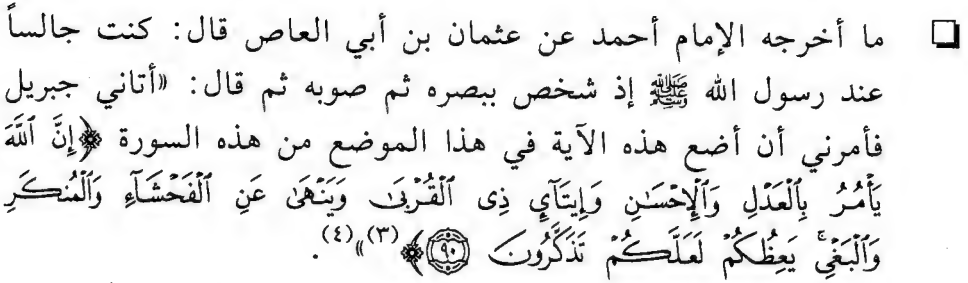 ❑ ما أخرجه الإمام أحمد عن عثمان بن أبي العاص قال: كنت جالساً
عند رسول الله ﷺ إذ شخص ببصره ثم صوبه ثم قال: «أتاني جبريل
فأمرني أن أضع هذه الآية في هذا الموضع من هذه السورة ﴿إِنَّ ٱللَّهَ
يَأْمُرُ بِٱلْعَدْلِ وَٱلْإِحْسَـٰنِ وَإِيتَآئِ ذِى ٱلْقُرْبَىٰ وَيَنْهَىٰ عَنِ ٱلْفَحْشَآءِ وَٱلْمُنكَرِ
وَٱلْبَغْىِ ۚ يَعِظُكُمْ لَعَلَّكُمْ تَذَكَّرُونَ ۝٩٠﴾(٣)»(٤).